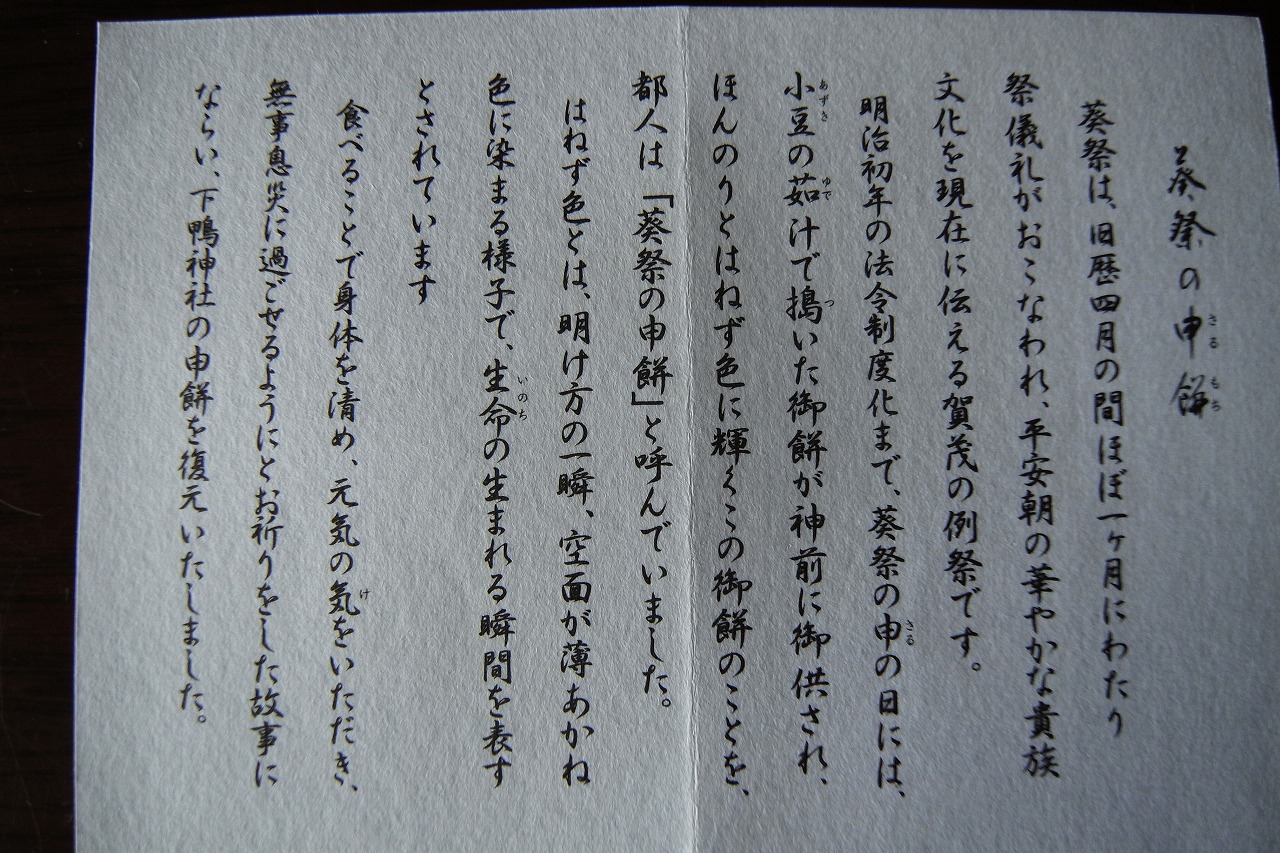 葵祭の申餅
葵祭は、旧暦四月の間ほぼ一ヶ月にわたり
祭儀礼がおこなわれ、平安朝の華やかな貴族
文化を現在に伝える賀茂の例祭です。
明治初年の法令制度化まで、葵祭の申の日には、
小豆の茹汁で搗いた御餅が神前に御供され、
ほんのりとはねず色に輝くこの御餅のことを、
都人は「葵祭の申餅」と呼んでいました。
はねず色とは、明け方の一瞬、空面が薄あかね
色に染まる様子で、生命の生まれる瞬間を表す
とされています
食べることで身体を清め、元気の気をいただき、
無事息災に過ごせるようにとお祈りをした故事に
ならい、下鴨神社の申餅を復元いたしました。